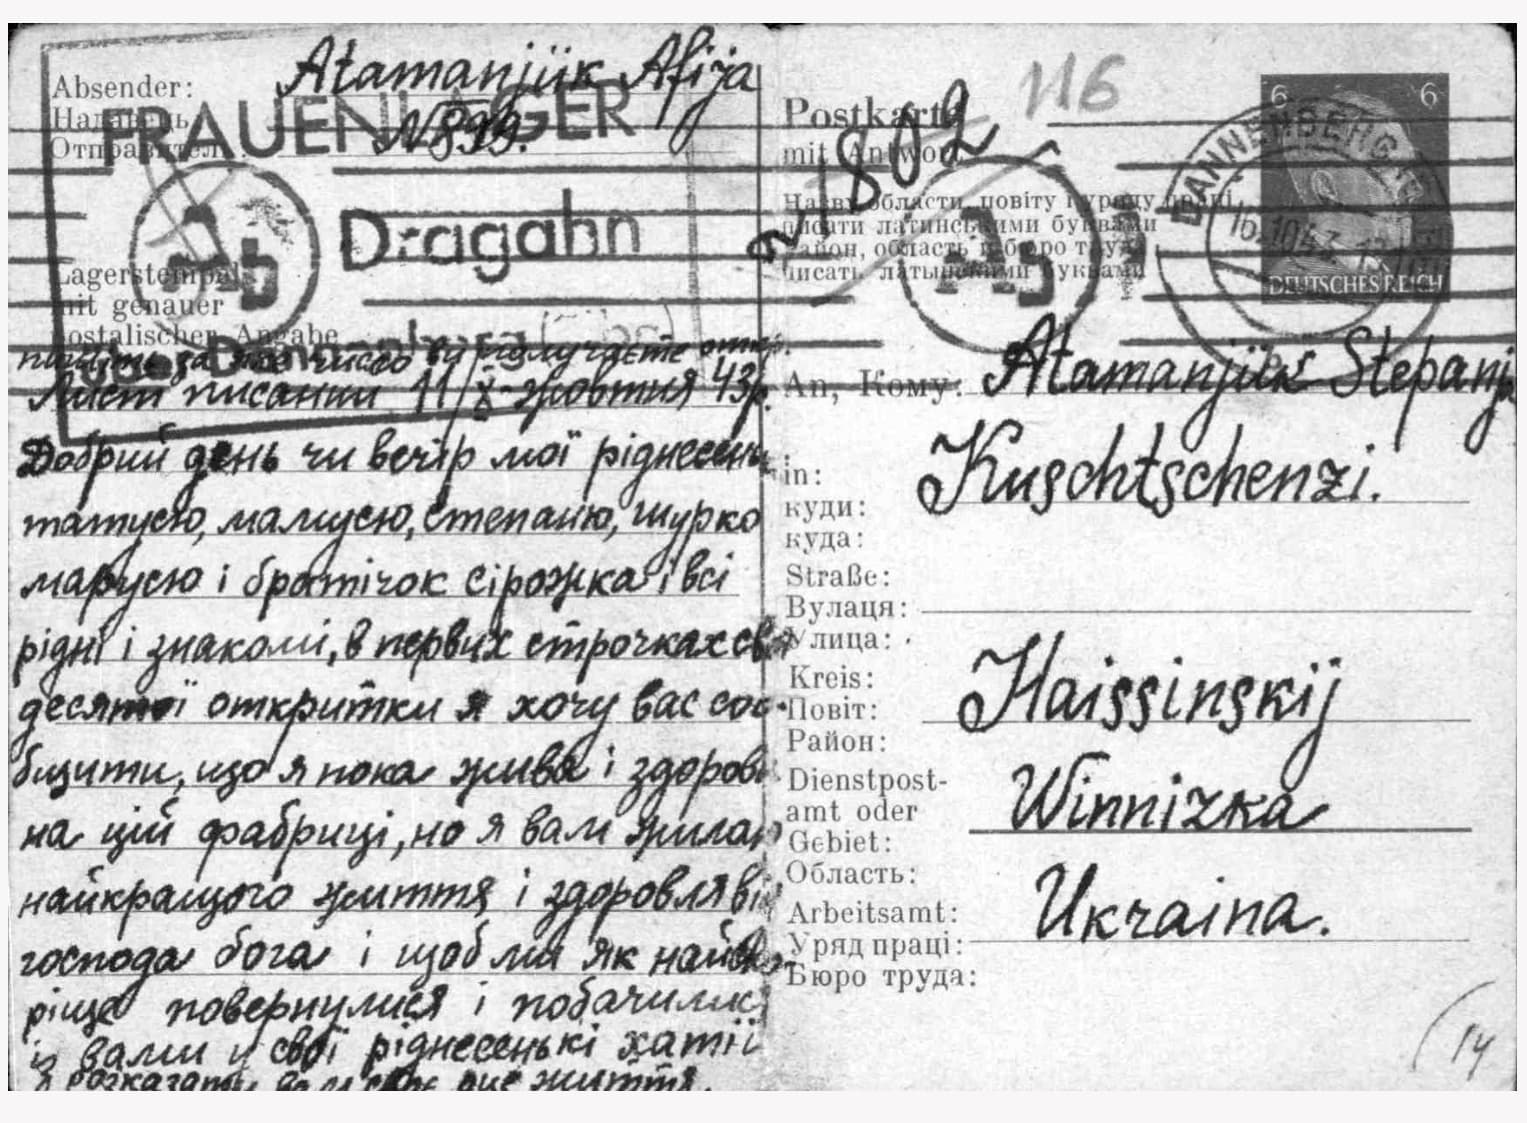 Absender:
Надавець
Отправитель:
Atamanjük Afija
N899.
FRAUENLAGER
Dragahn
Ab
Lagerstempel
mit genauer
postalischer Angabe
über Dannenberg
пишіть за яке число ви получаєте
Лист писаний 11/X-жовтня 43р.
Добрий день чи вечір мої ріднесеньк
татусю, мамусю, степаню, шурко
марусю і братічок сірожка і всі
рідні і знакомі, в первих строчках св
десятої откритки я хочу вас соо-
бщити, що я пока жива і здорова
на цій фабриці, но я вам жилаю
найкращого життя і здоровля від
господа бога і щоб ми як найско-
ріще повернулися і побачилися
із вами у свої ріднесенькі хатії
й розказати вам своє життя.
Postkarte
mit Antwort
116
Назву области, повіту і уряду праці
писати латинськими буквами
Район, область и бюро труда
писать латынскими буквами
Ab
DANNENBERG
16.10.43.
6 6
DEUTSCHES REICH
An, Кому: Atamanjük Stepanj
in:
куди:
куда:
Kuschtschenzi.
Straße:
Вулаця:
Улица:
Kreis:
Повіт:
Район:
Haissinskij
Dienstpost-
amt oder
Gebiet:
Область:
Winnizka
Arbeitsamt:
Уряд праці:
Бюро труда:
Ukraina.
14